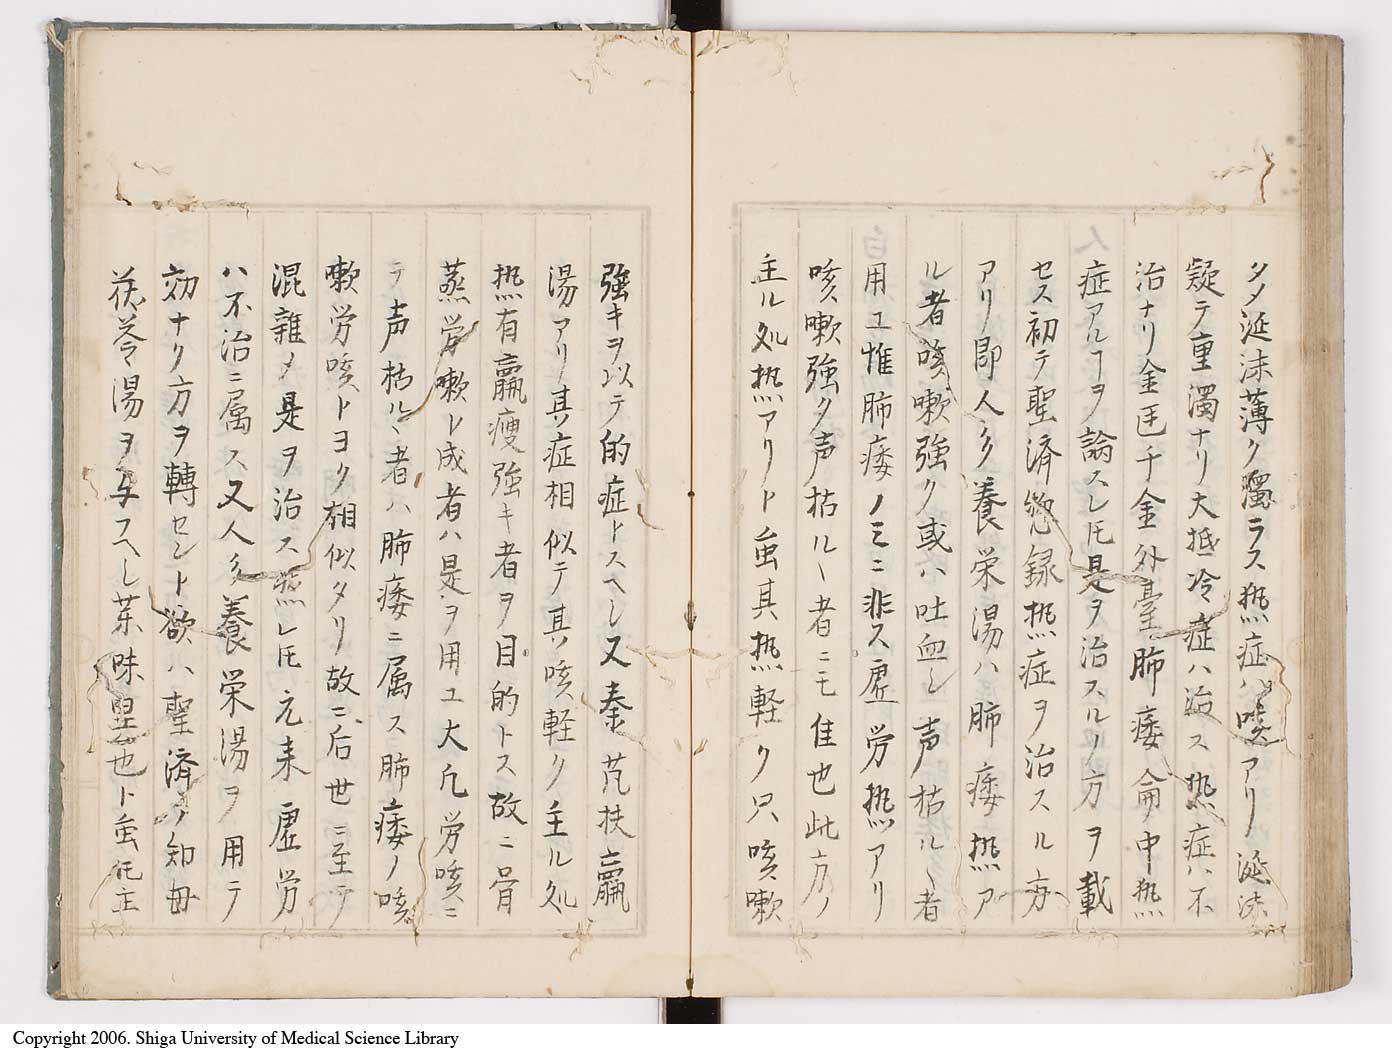 タメ涎沫薄ク濁ラス热症ハ咳アリ涎沫
凝テ重濁ナリ大抵冷症ハ治ス热症ハ不
治ナリ金匡千金外臺肺痿侖中热
症アルヿヲ論スレ𪜈是ヲ治スルノ方ヲ載
セス初テ聖済惣録热症ヲ治スル方
アリ即人参養栄湯ハ肺痿热ア
ル者咳嗽強ク或ハ吐血シ声枯ルヽ者
用ユ惟肺痿ノミニ非ス虚労热アリ
咳嗽強ク声枯ルヽ者ニモ佳也此方ノ
主ル処热アリト虽其热軽ク只咳嗽
強キヲ以テ的症トスヘシ又秦芃扶羸
湯アリ其症相似テ其咳軽ク主ル処
热有羸痩強キ者ヲ目的トス故ニ骨
蒸労嗽ト成者ハ是ヲ用ユ大凢労咳ニ
テ声枯ルヽ者ハ肺痿ニ属ス肺痿ノ咳
嗽労咳トヨク相似タリ故ニ后世ニ至テ
混雜メ是ヲ治ス然レ𪜈元来虚労
ハ不治ニ属ス又人参養栄湯ヲ用テ
効ナク方ヲ轉セント欲ハ聖済ノ知母
茯苓湯ヲ与フヘシ薬味異也ト虽𪜈主